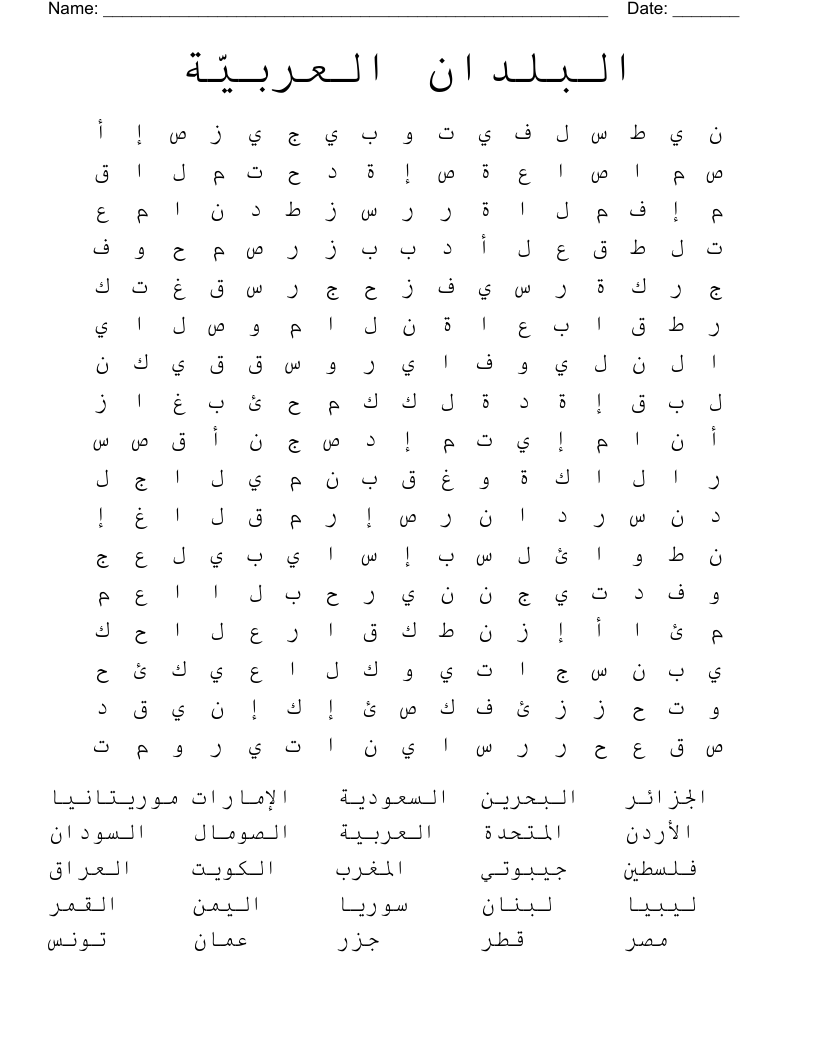 Name: _____________________________________________________ Date: _______
البلدان العربيّة
ن ي ط س ل ف ي ت و ب ي ج ي ز ص إ أ
ص م ا ص ا ع ة ص إ ة د ح ت م ل ا ق
م إ ف م ل ا ة ر ر س ز ط د ن ا م ع
ت ل ط ق ع ل أ د ب ب ز ر ص م ح و ف
ج ر ك ة ر س ي ف ز ح ج ر س ق غ ت ك
ر ط ق ا ب ع ا ة ن ل ا م و ص ل ا ي
ا ل ن ل ي و ف ا ي ر و س ق ق ي ك ن
ل ب ق إ ة د ة ل ك ك م ح ئ ب غ ا ز
أ ن ا م إ ي ت م إ د ص ج ن أ ق ص س
ر ا ل ا ك ة و غ ق ب ن م ي ل ا ج ل
د ن س ر د ا ن ر ص إ ر م ق ل ا غ إ
ن ط و ا ئ ل س ب إ س ا ي ب ي ل ع ج
و ف د ت ي ج ن ن ي ر ح ب ل ا ا ع م
م ئ ا أ إ ز ن ط ك ق ا ر ع ل ا ح ك
ي ب ن س ج ا ت ي و ك ل ا ع ي ك ئ ح
و ت ح ز ز ئ ف ك ص ئ إ ك إ ن ي ق د
ص ق ع ح ر ر س ا ي ن ا ت ي ر و م ت
الجزائر البحرين السعودية الإمارات موريتانيا
الأردن المتحدة العربية الصومال السودان
فلسطين جيبوتي المغرب الكويت العراق
ليبيا لبنان سوريا اليمن القمر
مصر قطر جزر عمان تونس